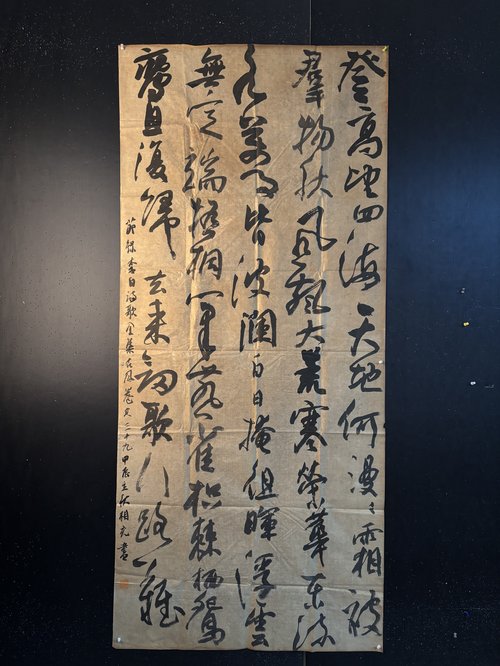 登高望四海天地何漫々霜被
羣物秋風飄大荒寒榮華東流
水萬事皆波瀾白日掩徂暉浮雲
無定端梧桐巢燕雀枳棘栖鴛
鸞且復歸去来劍歌行路難
節録李白詩歌全集古風卷其三十九甲辰立秋書